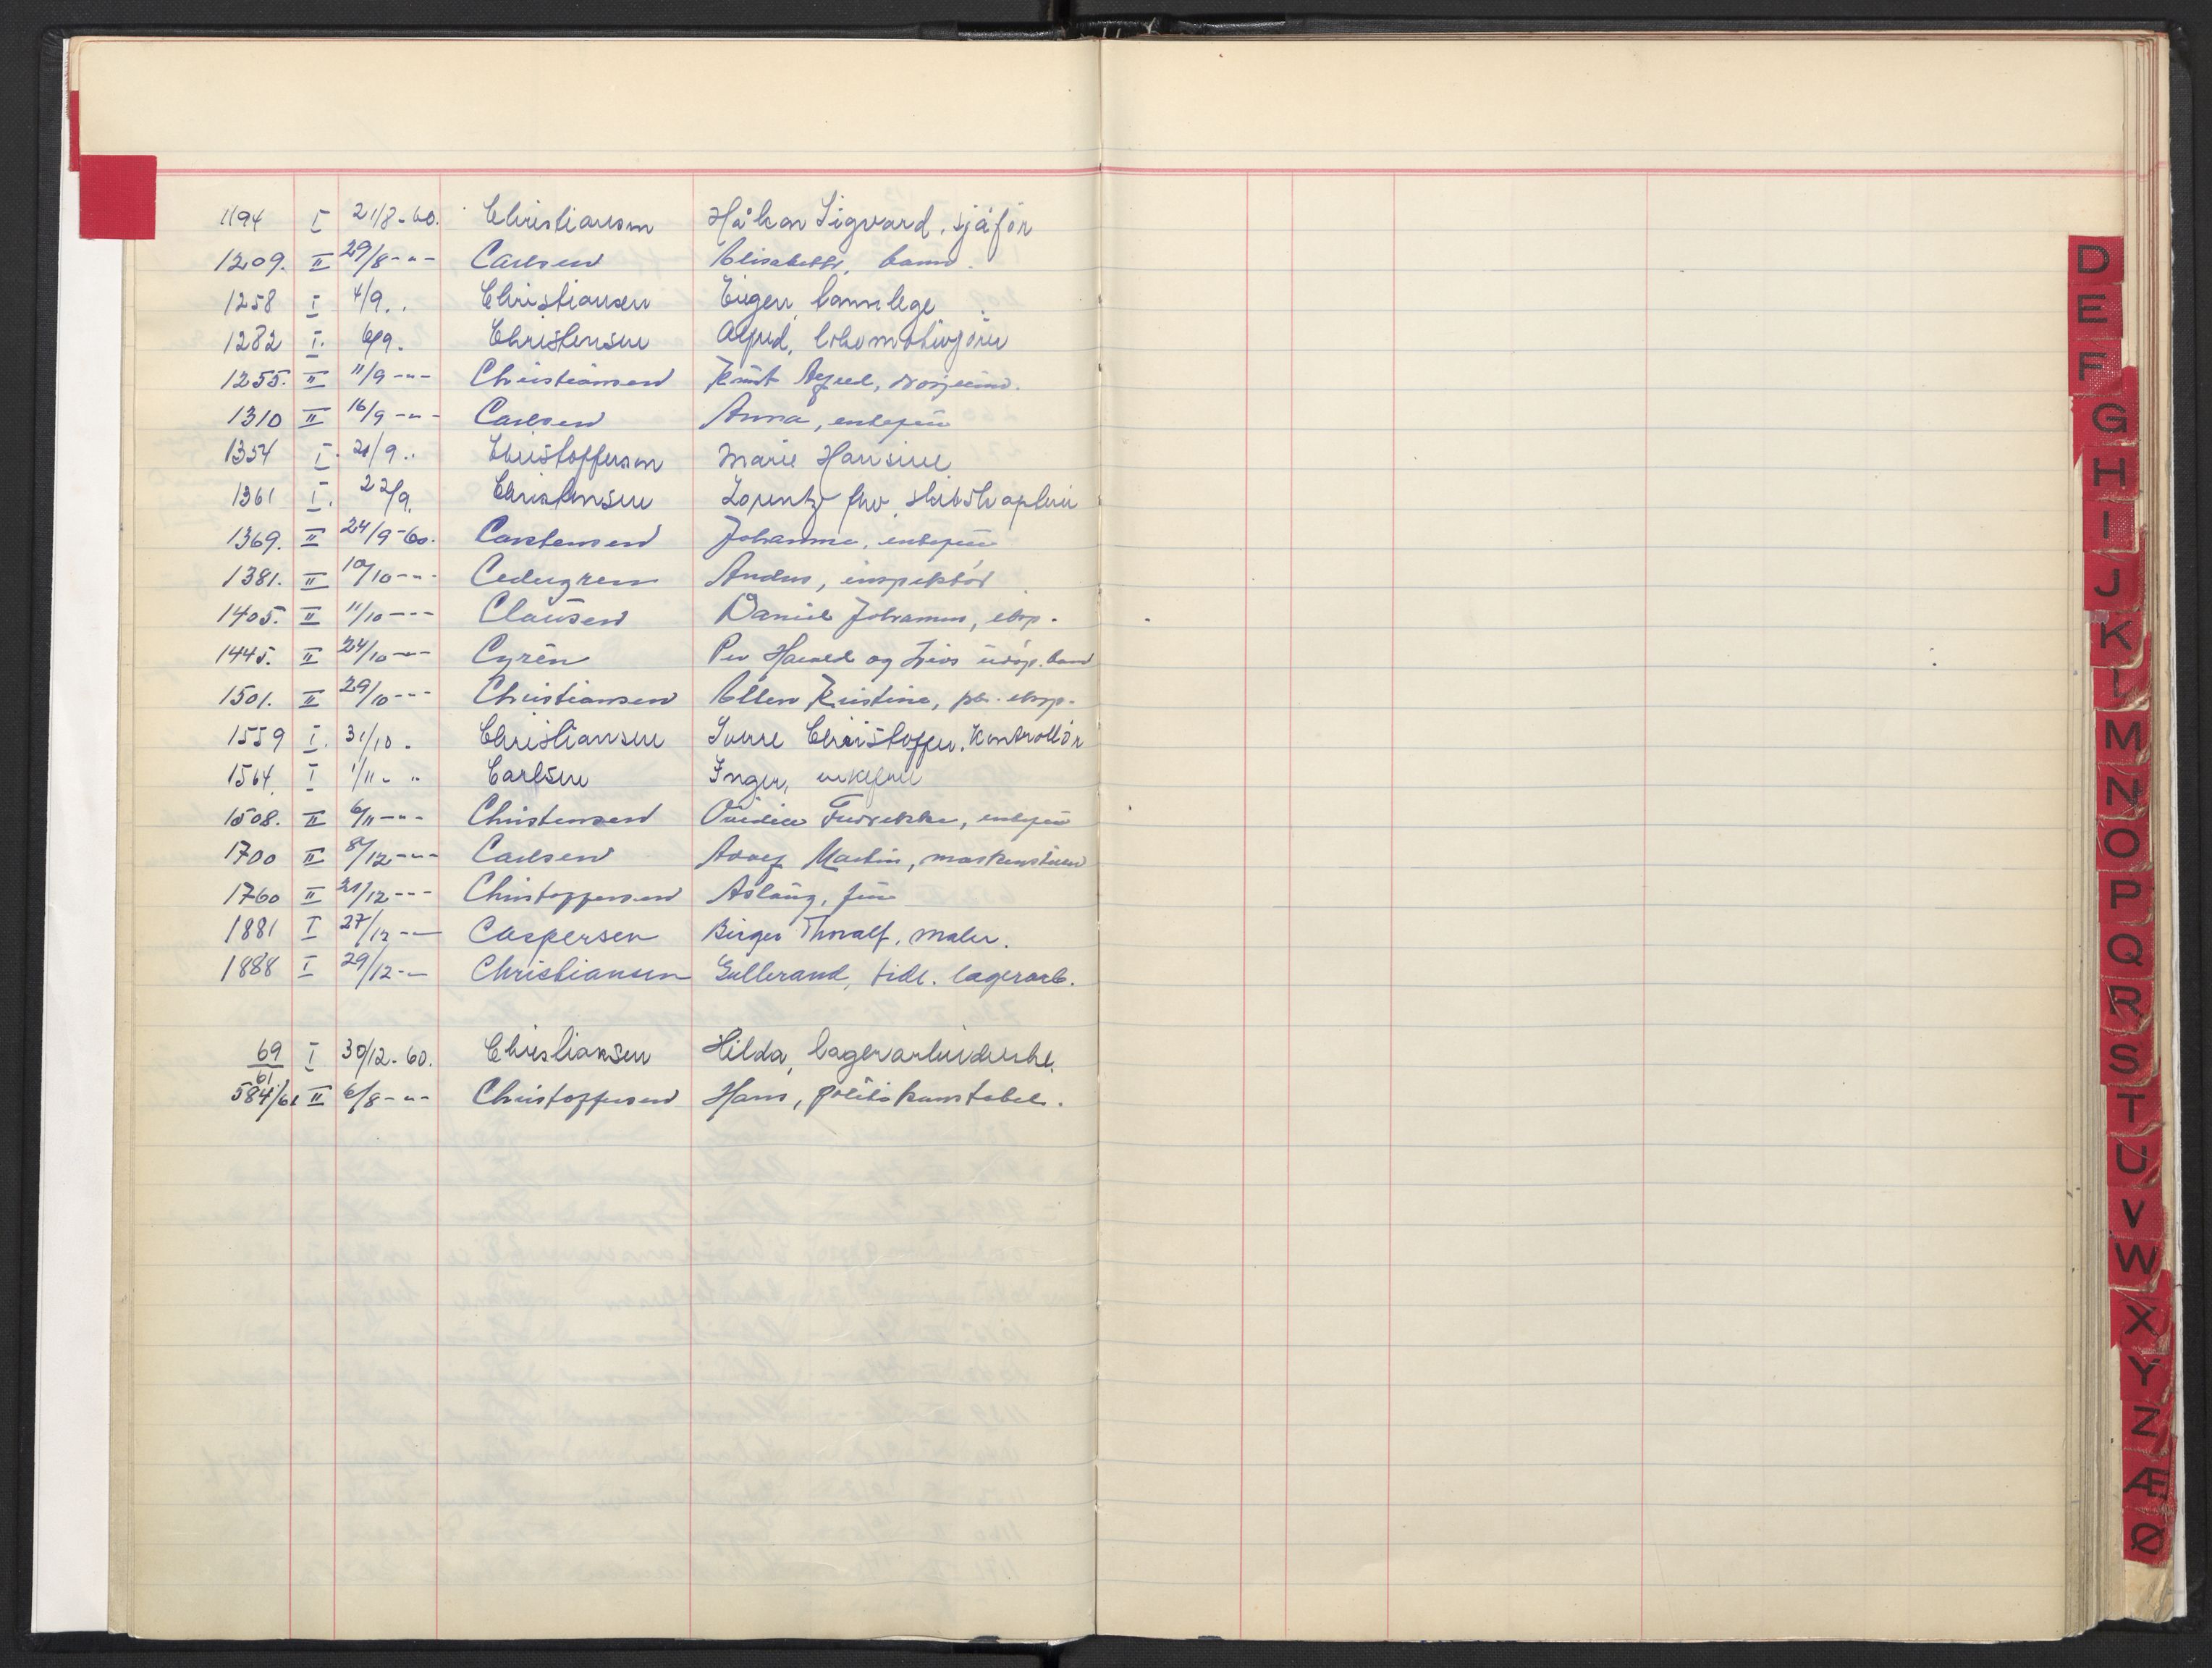 1194 I 21/8-60. Christiansen Håkon Sigvard, sjåfør
1209. II 29/8-"- Carlsen Elisabeth, barn.
1258 I 4/9.. Christiansen Eugen, tannlege
1282 I. 6/9. Christensen Alfred, lokomotivfører
1255. II 11/9-"- Christiansen Knut
1310 II 16/9-"- Carlsen Anna, enkefru
1354 I. 20/9.. Christoffersen Marie Hansine
1361 I. 22/9. Christensen Lorentz
1369. II 24/9-60. Carstensen Johanne, enkefru
1381. II 10/10-"- Cedergren Anders, inspektør
1405. II 11/10--- Clausen Daniel Johannes, eksp.
1445. II 24/10-"- Cyrén Per Harald og
1501. II 29/10-"- Christiansen Ellen Kristine,
1559 I. 31/10. Christiansen Sverre Christoffer, Kontrollør
1564. I 1/11-" Carlsen Inger, enkefru
1508. II 6/11-"- Christensen Fredrikke, enkefru
1700 II 8/12-"- Carlsen Adolf Martin,
1760 II 21/12--- Christoffersen Aslaug, fru
1881 I 27/12-"- Caspersen Birger Thoralf, maler.
1888 I 29/12-"- Christiansen Gulbrand, tidl. lagerarb.
69/61 I 30/12-60. Christiansen Hilda, lagerarbeiderske.
584/61 II 6/8-"- Christoffersen Hans, politikonstabel.
D
E
F
G
H
I
J
K
L
M
N
O
P
Q
R
S
T
U
V
W
X
Y
Z
Æ
Ø